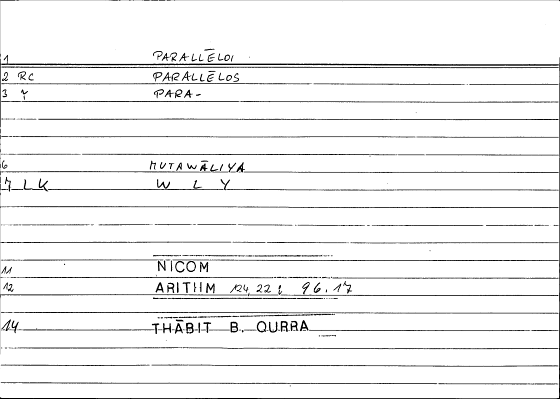 1 PARALLĒLOI
2 RC PARALLĒLOS
3 PARA-
6 MUTAWĀLIYA
7 L K W L Y
11 NICOM
12 ARITHM 124,22 96.17
14 THĀBIT B. QURRA